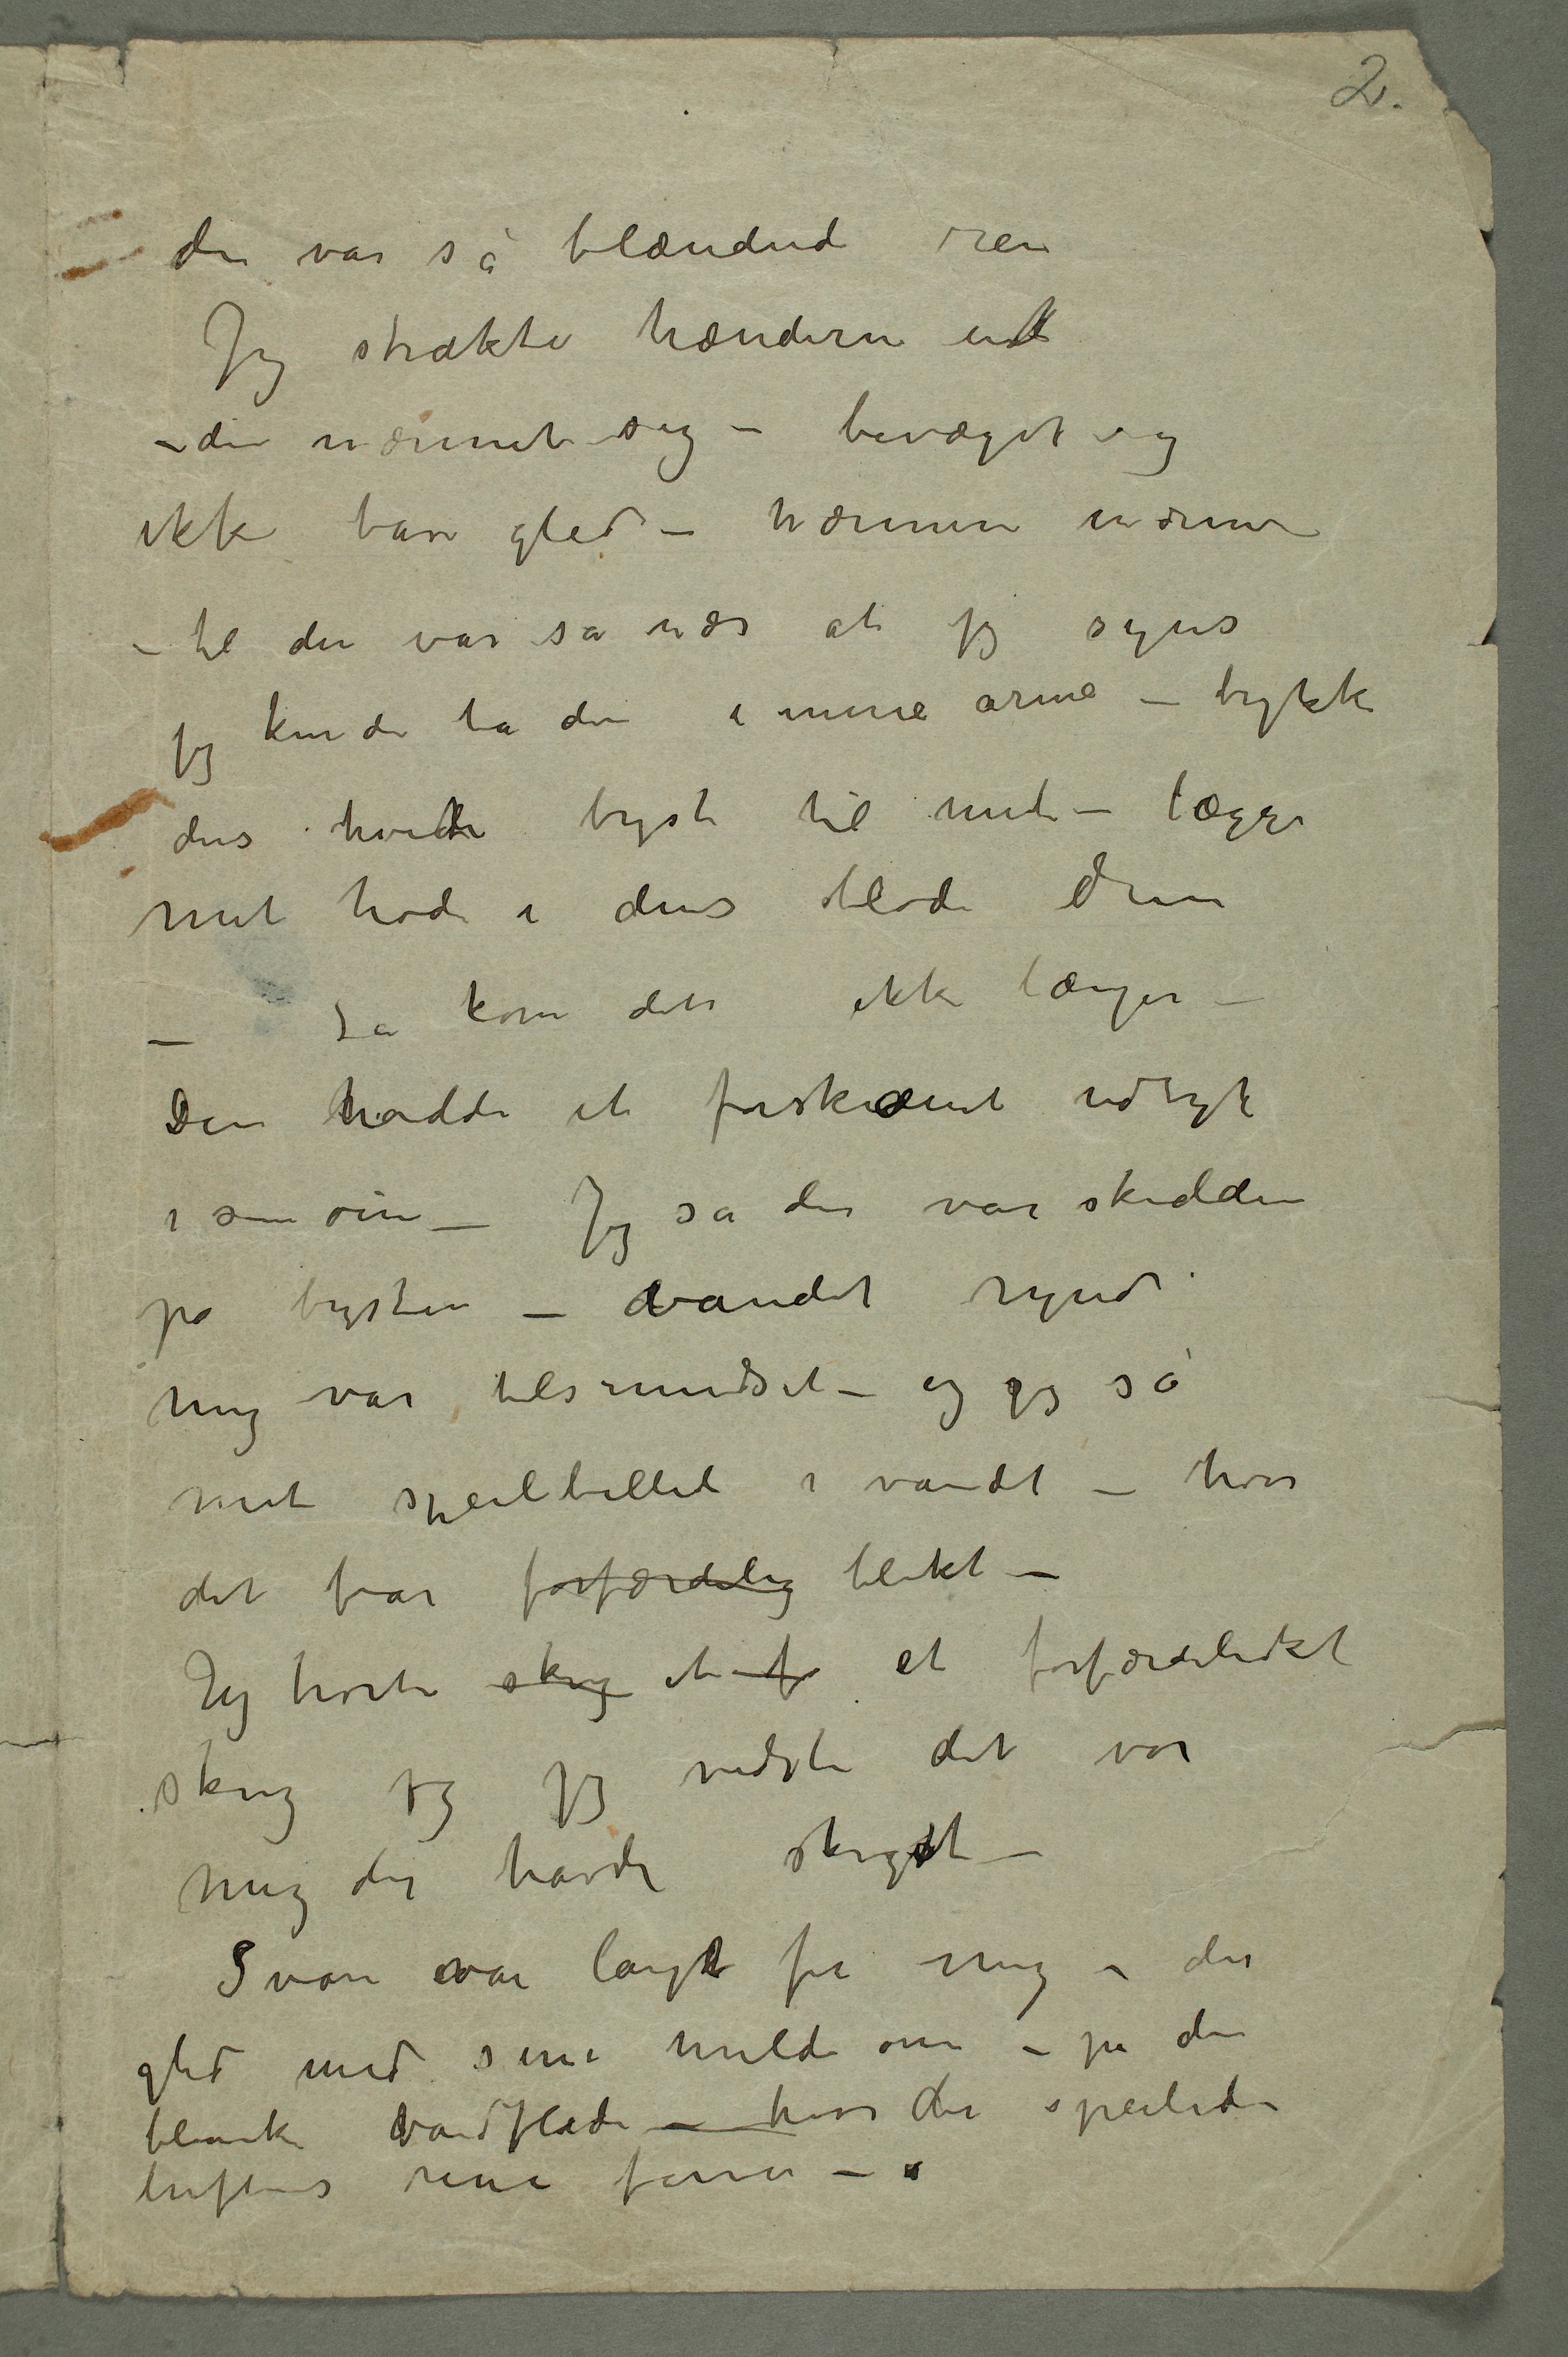 2.
den var så blændend ren
Jeg strakte hænderne ut
– den nærmet sig – bevæget sig
ikke bare gled – nærmere nærmere
– til den var så nær at jeg syns
jeg kunde ta den i mine arme – trykke
dens hvide bryst til mit – lægge
mit hode i dens bløde dun
– Så kom den ikke længer –
Den hadde et forskræmt udtryk
i sine øine – Jeg så den var skidden
på brysten – vandet rynd
mig var tilsmudset – og jeg så
mit speilbilled i vandet – hvor
det var forfærdelig blekt –
Jeg hørte skrig et f et forfærdeligt
skrig og jeg vidste det var
mig der havde skreget –
Svanen var langt fra mig – den
gled med sine milde øine – på den
blanke vandflade – hvor den speilede
luftens rene farver –